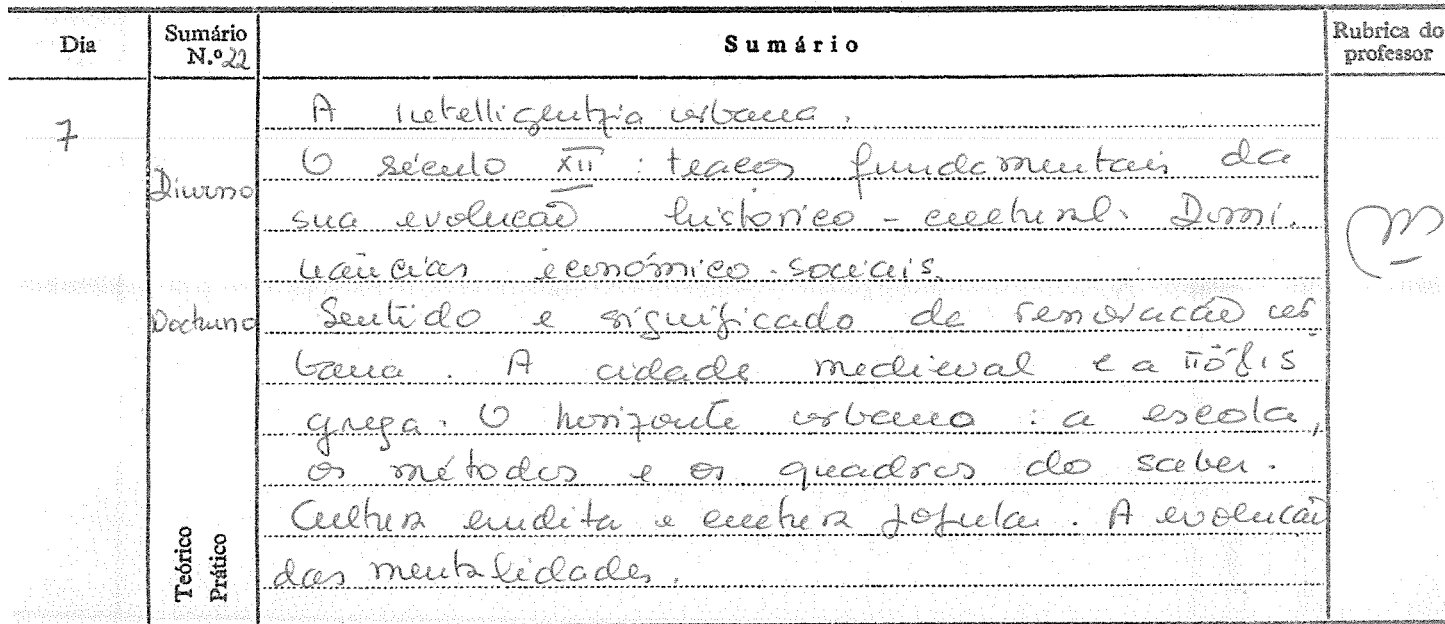 Dia
Sumário N.º 22
Sumário
Rubrica do professor
7
Diurno
Nocturno
Teórico
Prático
A intelligentzia urbana.
O século XII : traços fundamentais da
sua evolução histórico - cultural. Domi.
nâncias económico-sociais.
Sentido e significado da renovação ur
bana. A cidade medieval e a πόλις
grega. O horizonte urbano : a escola,
os métodos e os quadros do saber.
Cultura erudita e cultura popular. A evolução
das mentalidades.